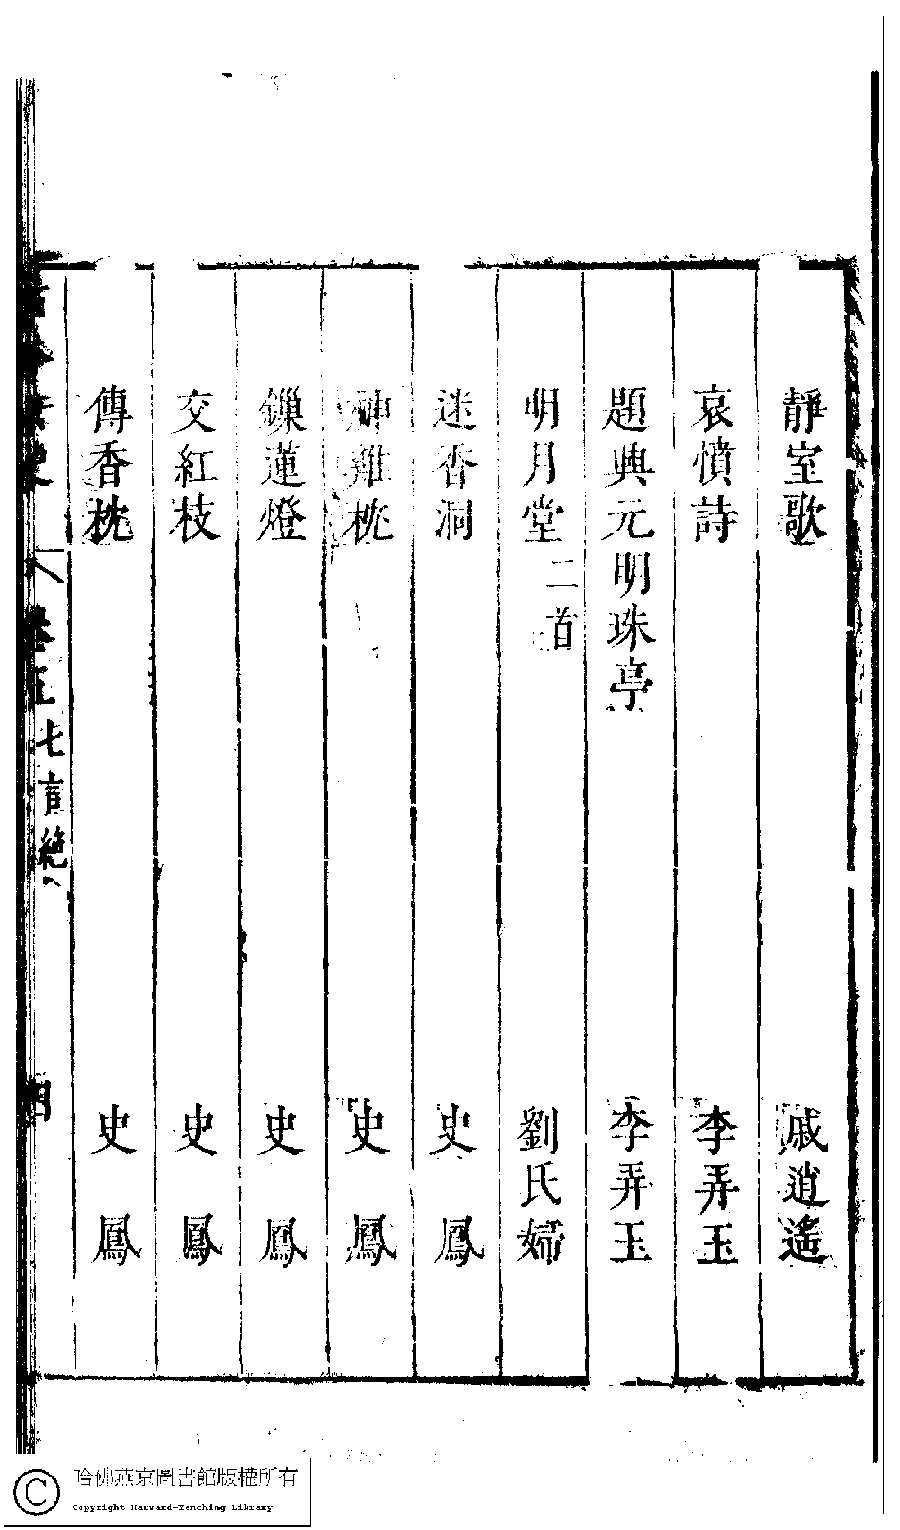 靜室歌 戚逍遙
哀憤詩 李弄玉
題興元明珠亭 李弄玉
明月堂 二首 劉氏婦
迷香洞 史鳳
神雞枕 史鳳
鎖蓮燈 史鳳
交紅枝 史鳳
傳香枕 史鳳
卷五 七言絕 四
哈佛燕京圖書館版權所有
Copyright Harvard-Yenching Library